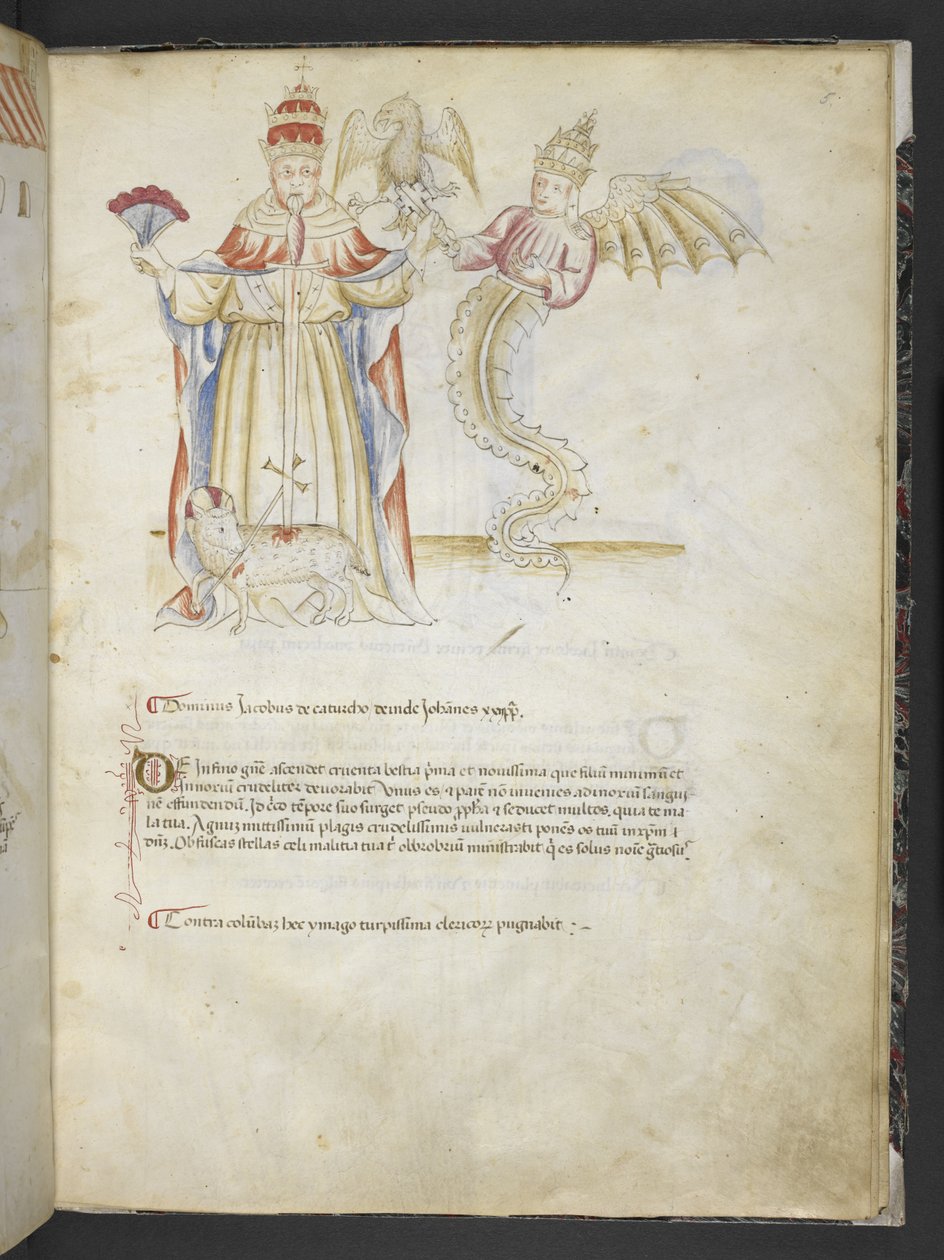 5.
¶ Dominus Jacobus de caturcho, deinde Johānes xxij pp̄.
DE Infimo gn̄e ascendet cruenta bestia p̄ma et nouissima que filiū minimū et
Innoxiū crudeliter deuorabit Vnus es, ⁊ parē nō inuenies ad inoxiū sangui-
nē effundendū. Id c̊co tēpore suo surget pseudo ꝓpħa ⁊ seducet multos. quia te ma-
la tua. Agnuꝫ mittissimū plagis crudelissimis uulnerasti ponēs os tuū in xp̄m ⁊
dn̄ꝫ. Obfuscas stellas celi malitia tua t͛ obbrobriū ministrabit q̇ es solus noīe
¶ Contra colūbaꝫ hec ymago turpissima clericoꝝ pugnabit :-